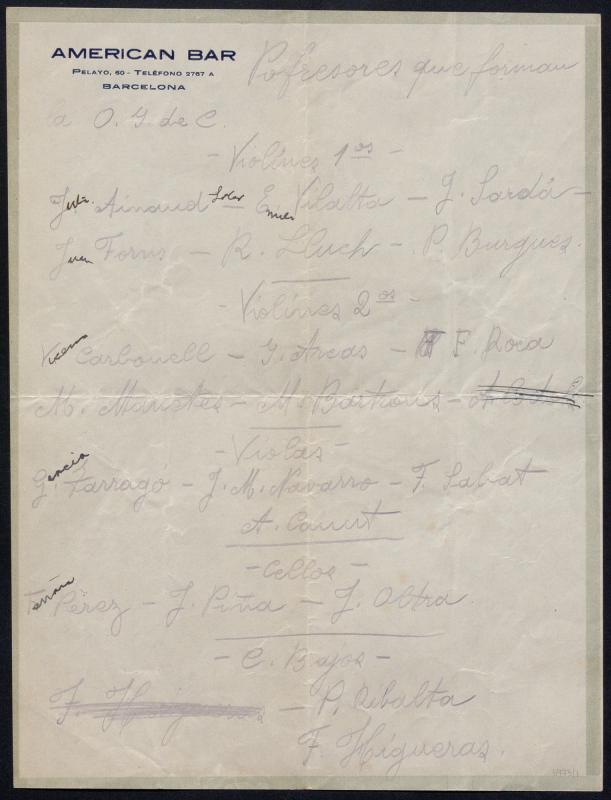 AMERICAN BAR
PELAYO, 60 - TELÉFONO 2767 A
BARCELONA
Pofresores que forman
la O. I. de C.
- Violines 1os -
J. Ainaud Soler - E. Vilalta - J. Sardá -
Juan Forns - R. Lluch - P. Burgues.
- Violines 2os -
Vicens Carbonell - J. Arcas - F. Roca
M. - M. Bartrons -
- Violas -
García G. Tarragó - J. M. Navarro - F. Sabat
A. Canut
- Cellos -
Pérez - J. Piña - J. Oltra
- C. Bajos -
F. - P. Ribalta
F. Higueras.